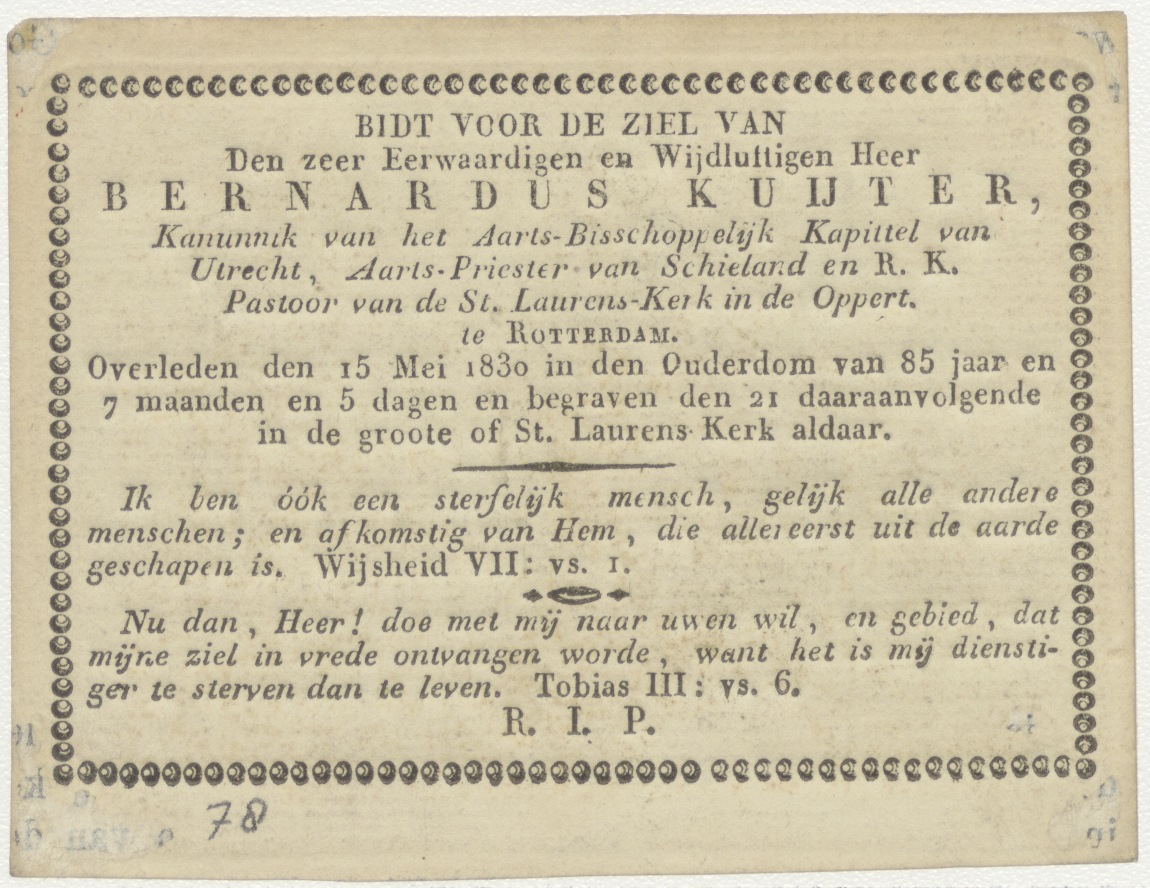 BIDT VOOR DE ZIEL VAN
Den zeer Eerwaardigen en Wijdluftigen Heer
BERNARDUS KUIJTER,
Kanunnik van het Aarts-Bisschoppelijk Kapittel van
Utrecht, Aarts-Priester van Schieland en R. K.
Pastoor van de St. Laurens-Kerk in de Oppert.
te ROTTERDAM.
Overleden den 15 Mei 1830 in den Ouderdom van 85 jaar en
7 maanden en 5 dagen en begraven den 21 daaraanvolgende
in de groote of St. Laurens-Kerk aldaar.
Ik ben óók een sterfelijk mensch, gelijk alle andere
menschen; en afkomstig van Hem, die allereerst uit de aarde
geschapen is. Wijsheid VII: vs. 1.
Nu dan, Heer! doe met mij naar uwen wil, en gebied, dat
mijne ziel in vrede ontvangen worde, want het is mij diensti-
ger te sterven dan te leven. Tobias III: vs. 6.
R. I. P.
78